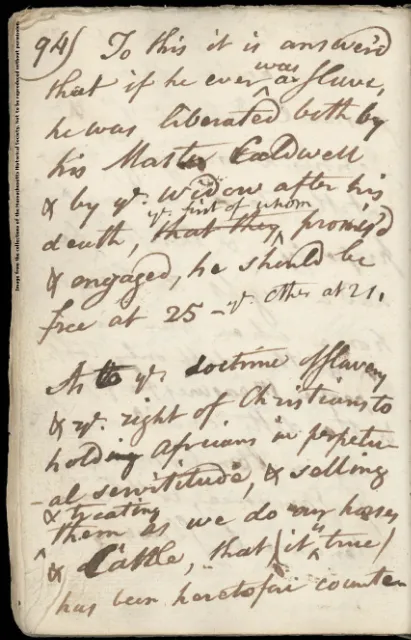 94) To this it is answer'd
that if he ever was a Slave,
he was liberated both by
his Master Caldwell
& by ye. widow after his
death, that they ye. first of whom promis'd
& engaged, he should be
free at 25 - ye. other at 21.
As to ye. doctrine of Slavery
& ye. right of Christians to
holding Africans in perpetu-
-al servitude, & selling
& treating
them as we do our horses
& Cattle, that (it is true)
has been heretofore counten
Image from the collections of the Massachusetts Historical Society. Not to be reproduced without permission.